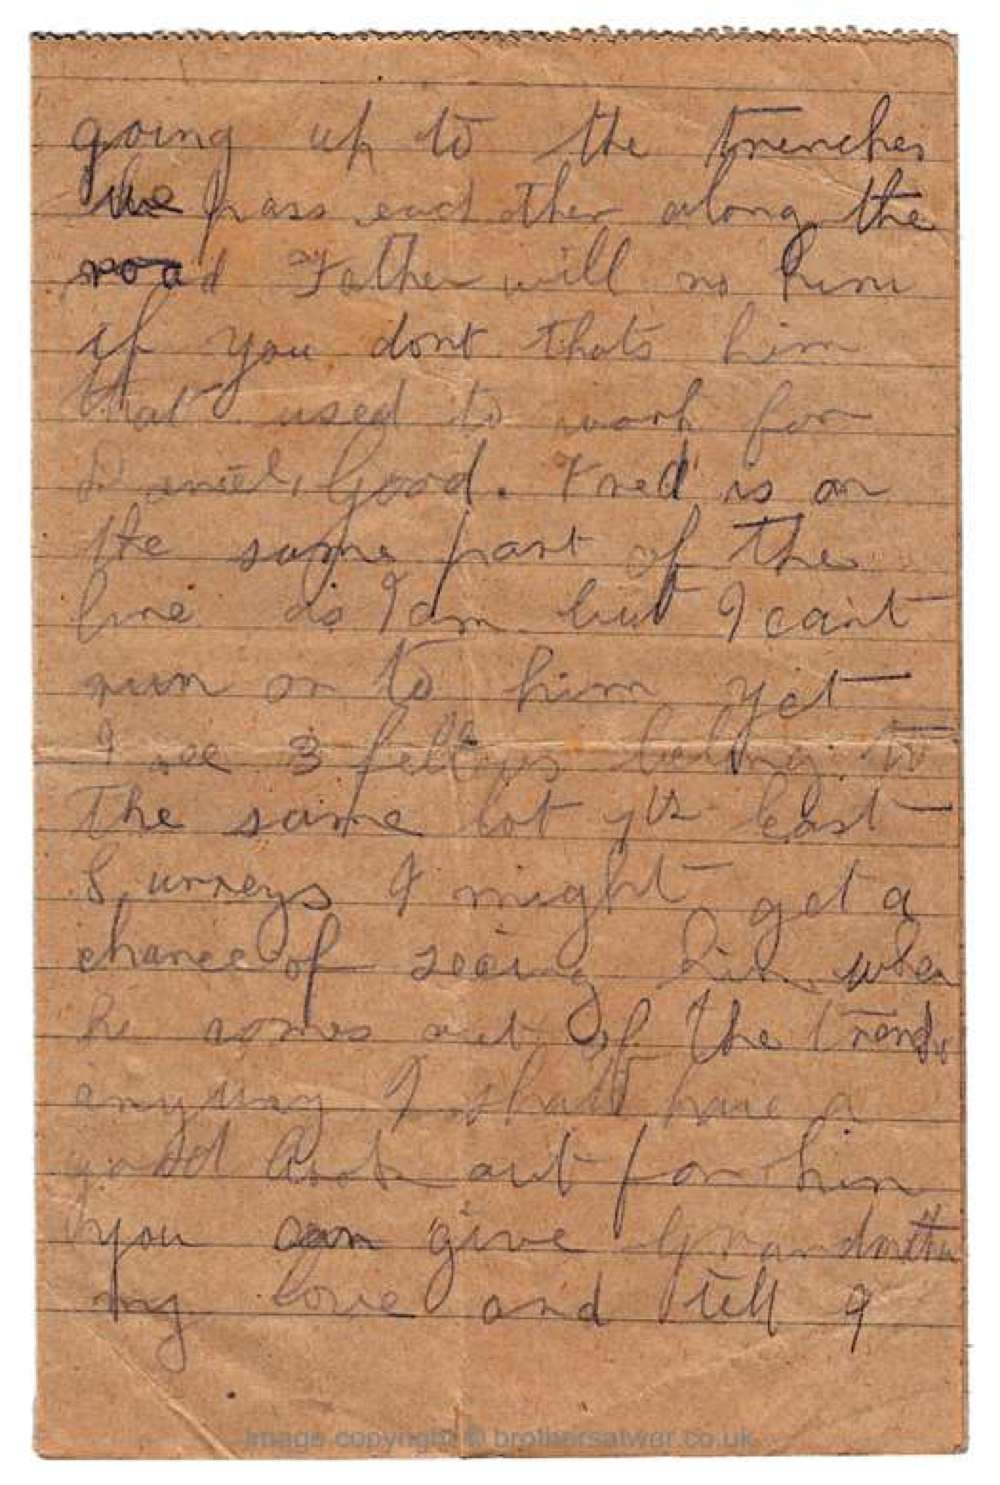 going up to the trenches
we pass each other along the
road Father will no him
if you dont thats him
that used to work for
Daniel Good. Fred is on
the same part of the
line as I am but I cant
run on to him yet
I see 3 fellows belong to
the same lot 7th East
Surreys I might get a
chance of seeing him when
he comes out of the trench
anyway I shall have a
good look out for him
you can give Grandmother
my love and tell
Image copyright © brothersatwar.co.uk